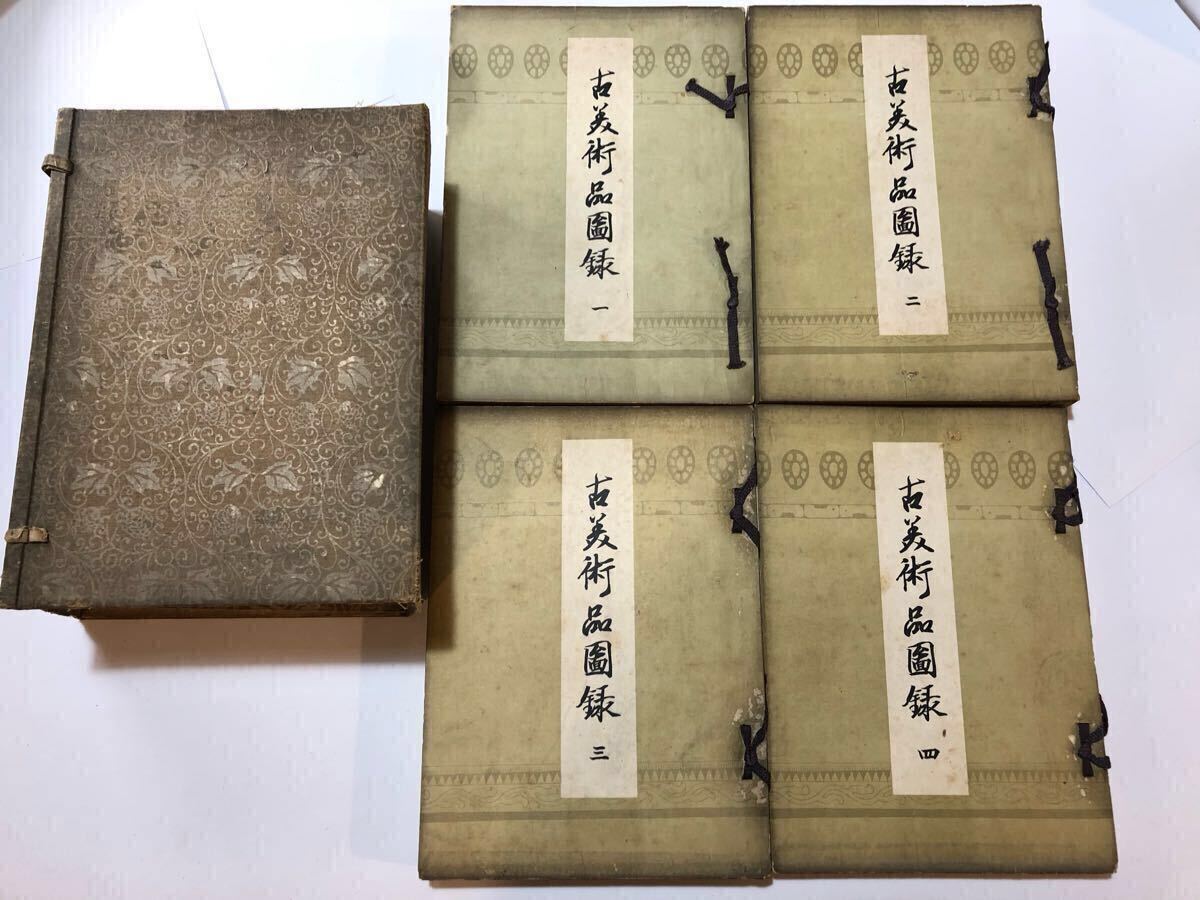 古美術品圖録 一
古美術品圖録 二
古美術品圖録 三
古美術品圖録 四